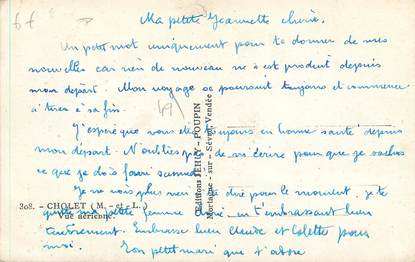 Ma petite Jeannette chérie.
Un petit mot uniquement pour te donner de mes
nouvelles car rien de nouveau ne s'est produit depuis
mon départ. Mon voyage se poursuit toujours et commence
à tirer à sa fin.
J'espère que vous êtes toujours en bonne santé depuis
mon départ. N'oublies pas de m'écrire pour que je sache
ce que je dois faire
Je ne vois plus rien à te dire pour le moment, je te
quitte ma petite femme chérie en t'embrassant bien
tendrement. Embrasse bien Claude et Colette pour
moi.
Ton petit mari que t'adore
308. - CHOLET (M.-et-L.)
Vue aérienne.
Editions JEHLY-POUPIN
Mortagne-sur-Sèvre, Vendée